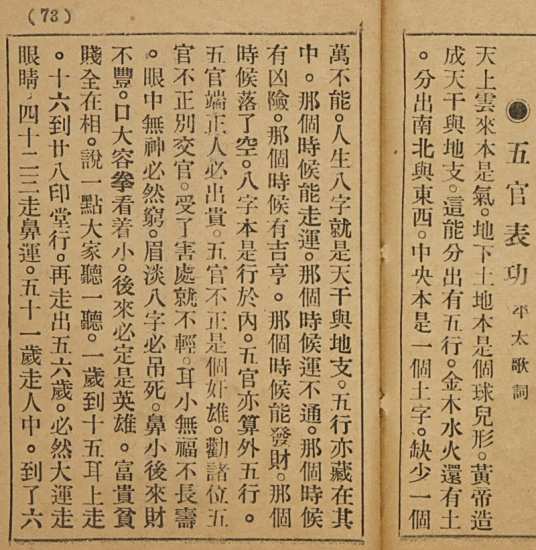 ●五官表功 平太歌詞
天上雲來本是氣。地下土地本是個球兒形。黃帝造
成天干與地支。這能分出有五行。金木水火還有土
。分出南北與東西。中央本是一個土字。缺少一個
(73)
萬不能。人生八字就是天干與地支。五行亦藏在其
中。那個時候能走運。那個時候運不通。那個時候
有凶險。那個時候有吉亨。那個時候能發財。那個
時候落了空。八字本是行於內。五官亦算外五行。
五官端正人必出貴。五官不正是個奸雄。勸諸位五
官不正別交官。受了害處就不輕。耳小無福不長壽
。眼中無神必然窮。眉淡八字必吊死。鼻小後來財
不豐。口大容拳看着小。後來必定是英雄。富貴貧
賤全在相。說一點大家聽一聽。一歲到十五耳上走
。十六到廿八印堂行。再走出五六歲。必然大運走
眼睛。四十二三走鼻運。五十一歲走人中。到了六